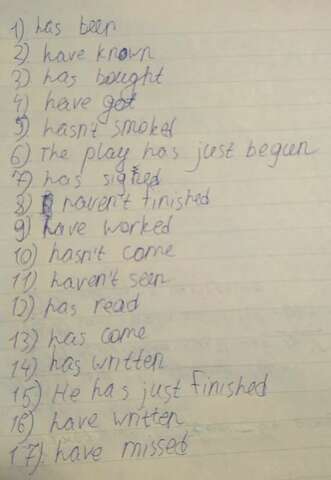 1) has been
2) have known
3) has bought
4) have got
5) hasn't smoked
6) The play has just begun
7) has signed
8) haven't finished
9) have worked
10) hasn't come
11) haven't seen
12) has read
13) has come
14) has written
15) He has just finished
16) have written
17) have missed